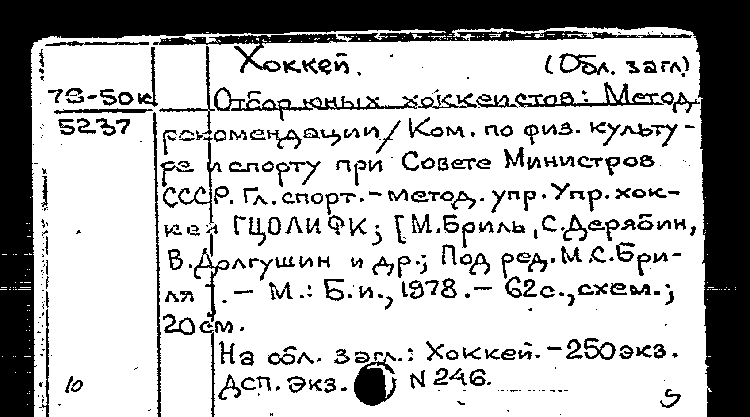 Хоккей.
(Обл. загл)
78-50к
5237
Отбор юных хоккеистов: Метод.
рекомендации/ Ком. по физ. культу-
ре и спорту при Совете Министров
СССР. Гл. спорт.-метод. упр. Упр. хок-
кей ГЦОЛИФК; [М.Бриль, С.Дерябин,
В.Долгушин и др.; Под ред. М.С.Бри-
ля]. - М.: Б.и., 1978. - 62с., схем.;
20 см.
На обл. загл.: Хоккей. - 250 экз.
Дсп. экз. N 246.
10